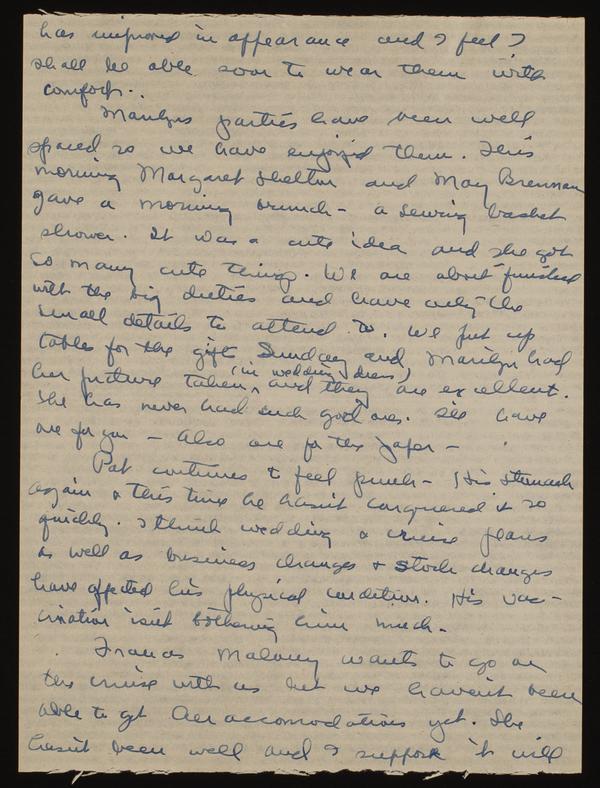 has improved in appearance and I feel I
shall be able soon to wear them with
comfort..
Marilyns parties have been well
spaced so we have enjoyed them. This
morning Margaret Shelton and May Brennan
gave a morning brunch - a sewing basket
shower. It was a cute idea and she got
so many cute things. We are about finished
with the big duties and have only the
small details to attend to. We put up
tables for the gifts Sunday and Marilyn had
her picture taken, (in wedding dress) and they are excellent.
She has never had such good ones. We have
one for you - also one for the paper -
Pat continues to feel punk - His stomach
again & this time he hasn't conquered it so
quickly. I think wedding & cruise plans
as well as business changes & stock changes
have affected his physical condition. His vac-
cination isn't bothering him much.
Frances Maloney wants to go on
the cruise with us but we haven't been
able to get her accomodations yet. She
hasn't been well and I suppose it will